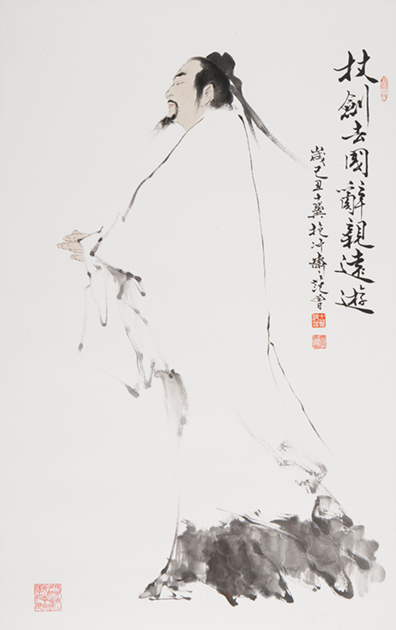 杖劍去國辭親遠遊
歲己丑十翼抱冲齋主范曾